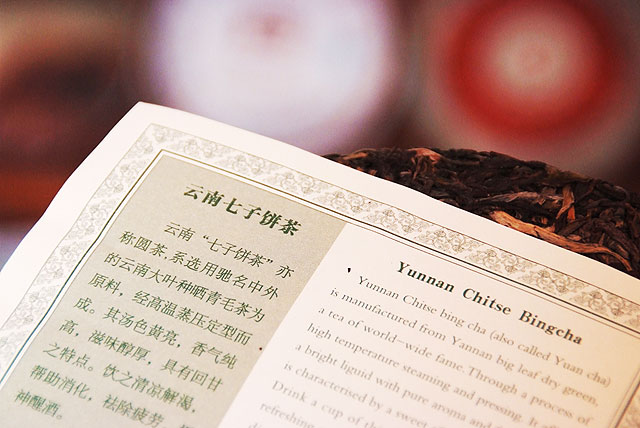 云南七子饼茶
云南“七子饼茶”亦
称圆茶,系选用驰名中外
的云南大叶种晒青毛茶为
原料,经高温蒸压定型而
成。其汤色黄亮,香气纯
高,滋味醇厚,具有回甘
之特点。饮之清凉解渴,
帮助消化,祛除疲劳
神醒酒。
Yunnan Chitse Bingcha
Yunnan Chitse bing cha (also called Yuan cha)
is manufactured from Yannan big leaf dry green,
a tea of world-wide fame. Through a process of
high temperature steaming and pressing. It
a bright liguid with pure aroma and
is characterised by a sweet
Drink a cup of
refreshing